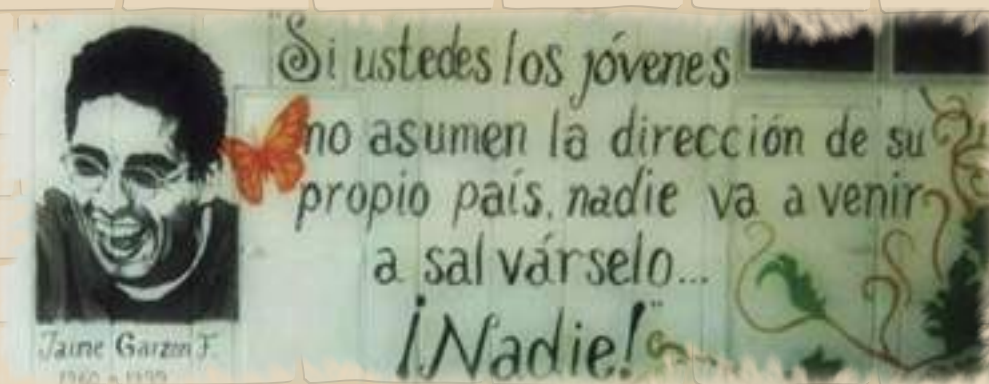 "Si ustedes los jóvenes
no asumen la dirección de su
propio país, nadie va a venir
a salvárselo...
¡Nadie!"
Jaime Garzón F.
1960 - 1999